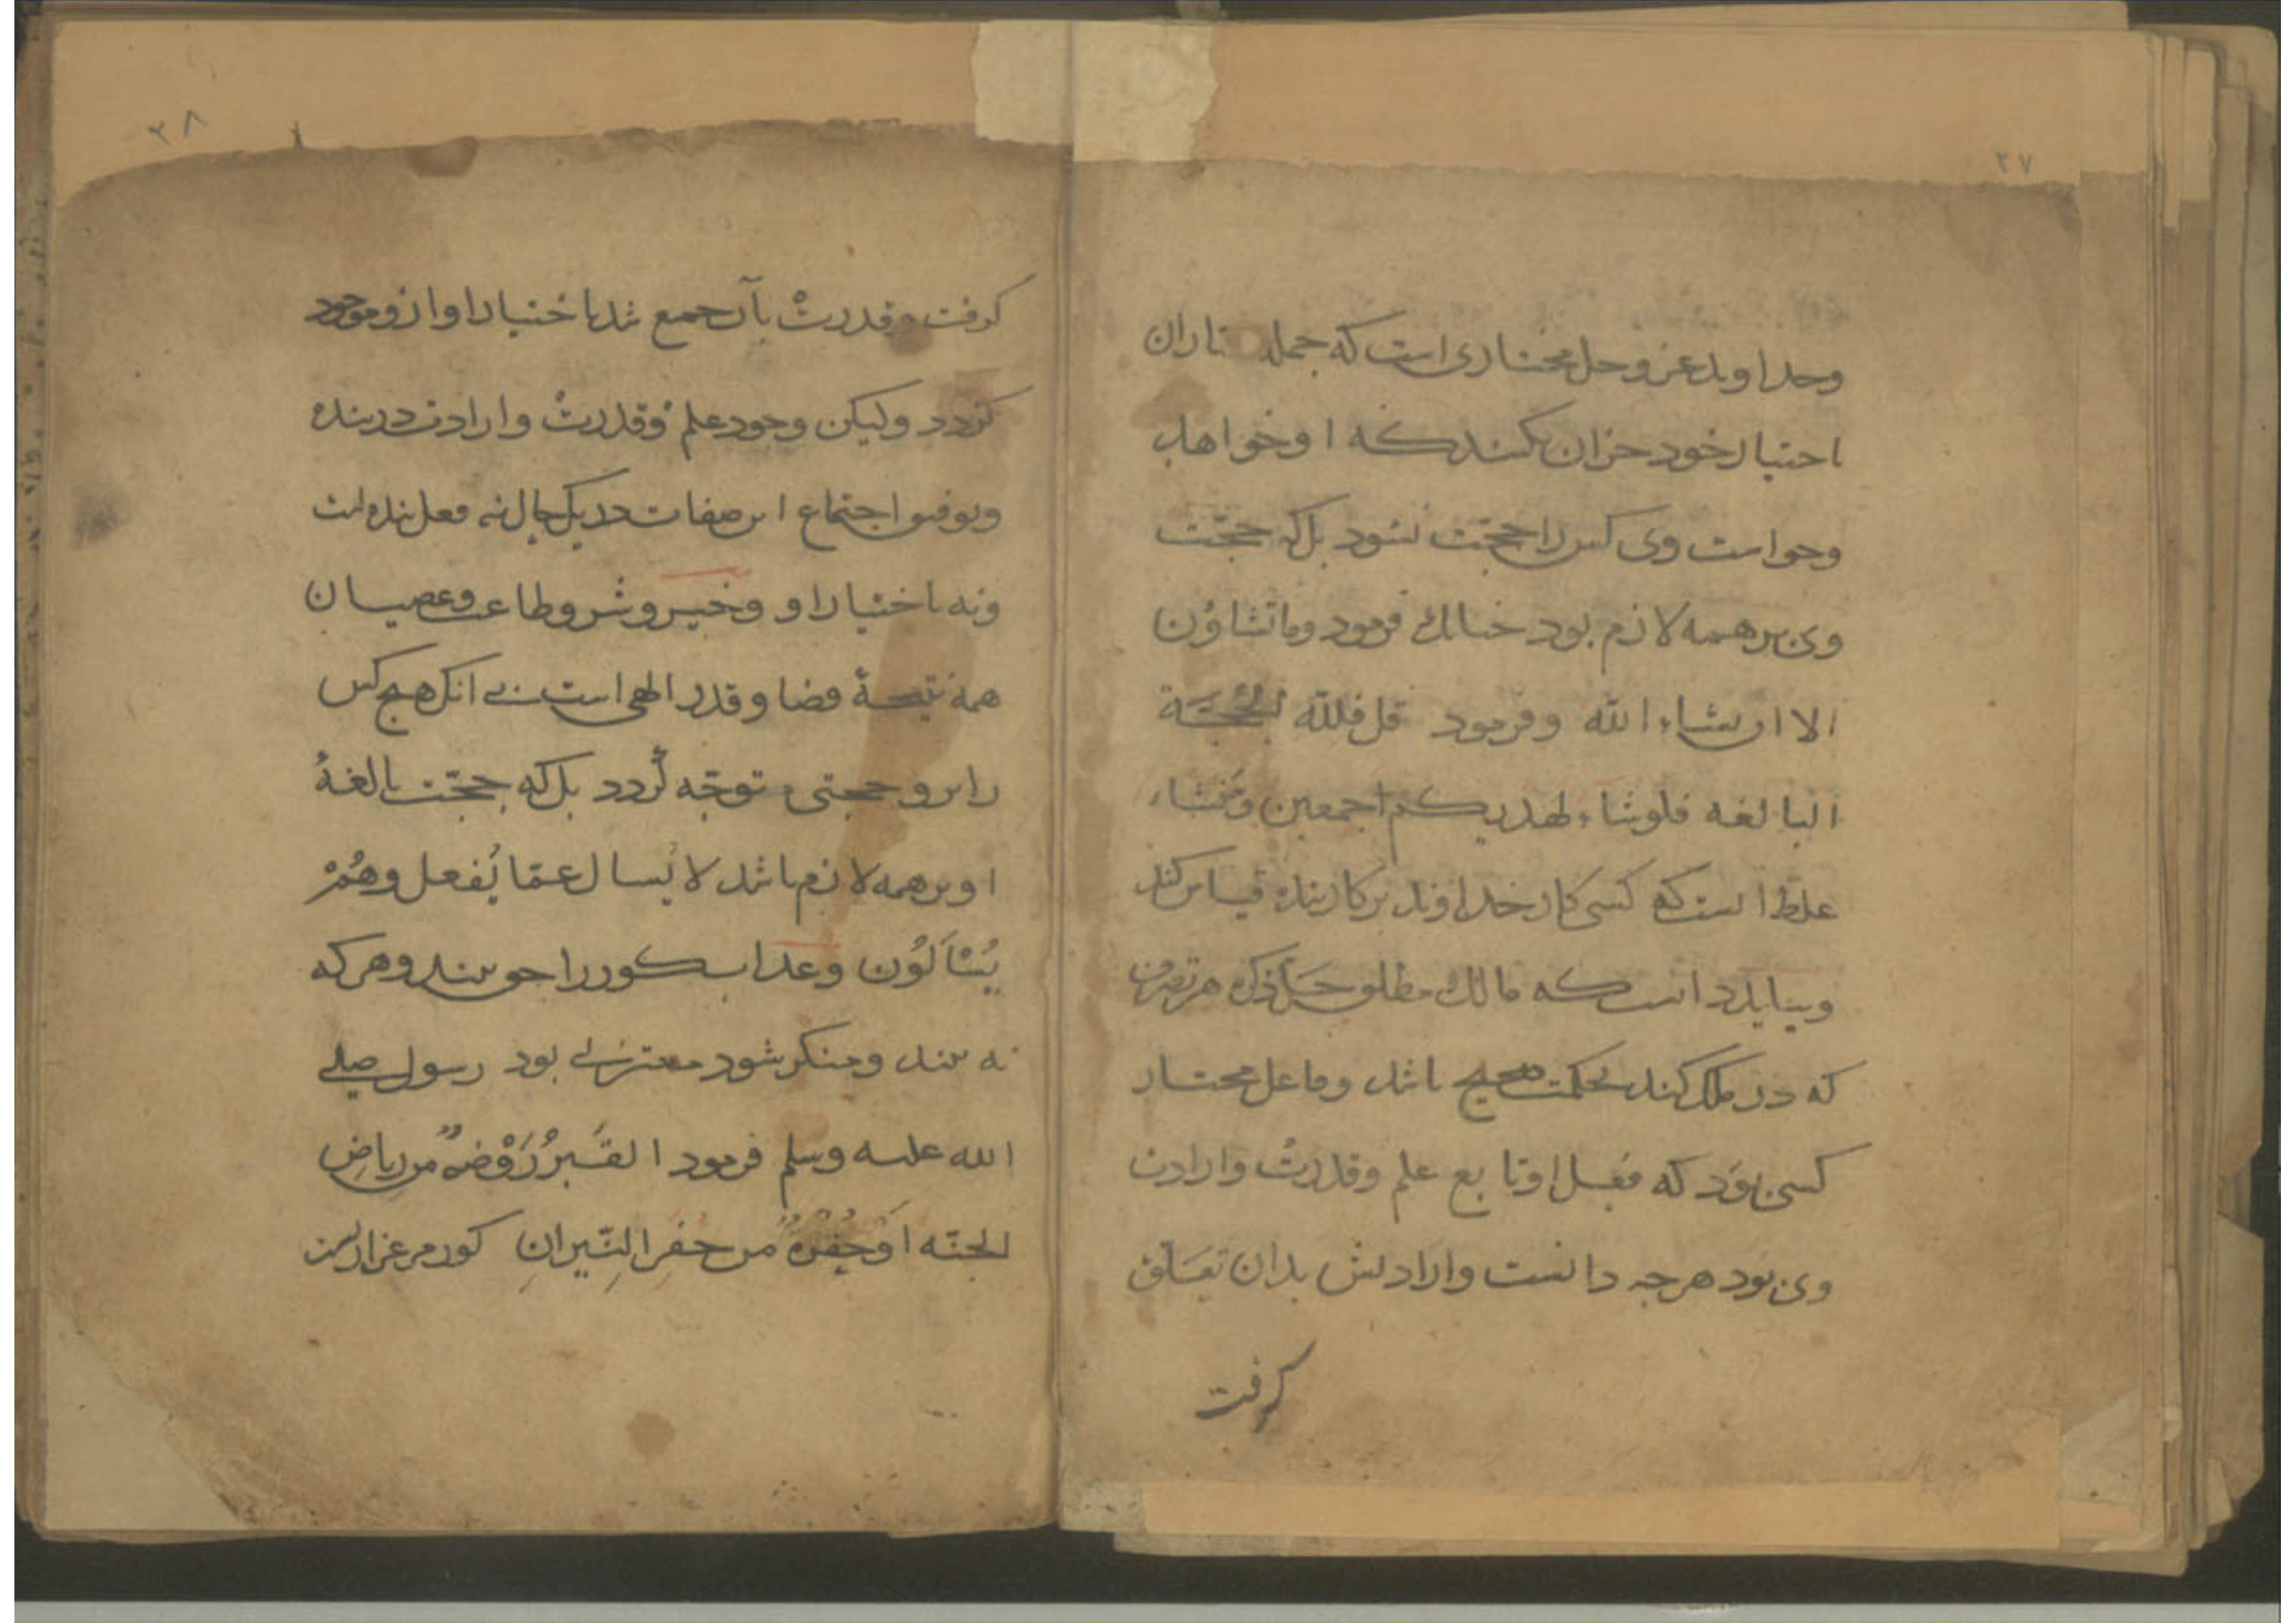 ۲۷
وخداوند عز وجل مختاری است که جمله
اختیار خود جز آن نکنند که او خواهد
وخواست وی کس را حجّت نشود بلکه حجّت
وی بر همه لازم بود چنانک فرمود وما تشاؤن
الا ان یشاء الله وفرمود قل فلله الحجّة
البالغه فلو شاء لهدیکم اجمعین
غلط است که کسی کار خداوند بر کار بنده قیاس کند
وبباید دانست که مالک مطلق هر تصرف
که در ملک کند بحکمت صحیح باشد وفاعل مختار
کسی بود که فعل او تابع علم وقدرت وارادت
وی بود هرچه دانست وارادتش بدان تعلق
کرفت
۲۸
کرفت وقدرت بآن جمع شد باختیار او ازو موجود
کردد ولیکن وجود علم وقدرت وارادت در بنده
وتوفیق اجتماع این صفات در یک حال نه فعل بنده است
ونه باختیار او وخیر وشر وطاعت وعصیان
همه نتیجهٔ قضا وقدر الهی است بی انک هیچ کس
را برو حجتی متوجّه کردد بلکه حجّت بالغهٔ
او بر همه لازم باشد لا یُسال عمّا یَفعل وهُمْ
یُسْأَلُوْن وعذاب کور را حق بیند وهر که
نه بیند ومنکر شود معتزلی بود رسول صلی
الله علیه وسلم فرمود القَبرُ رَوْضةٌ من ریاضِ
الجنّه اَوْ حُفْرةٌ من حُفَرِ النّیرانِ کور مرغزاریست